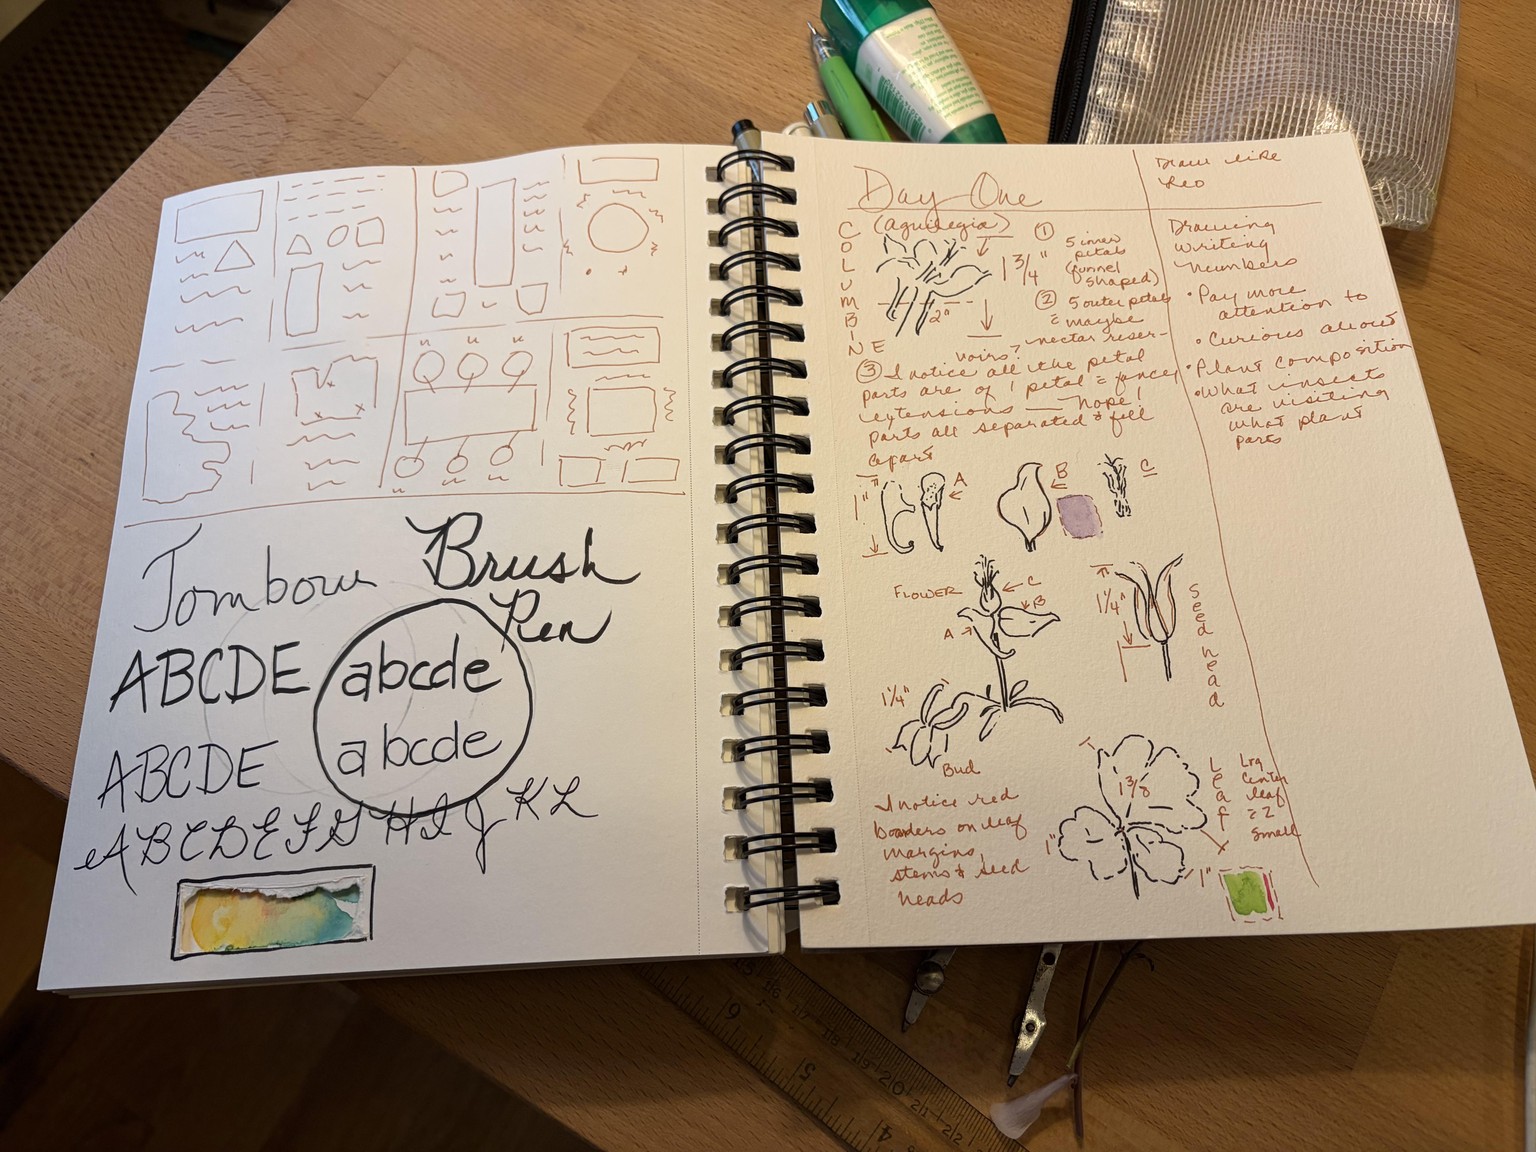 Tombow Brush
Pen
ABCDE
abcde
ABCDE
abcde
ABCDEFGHIJKL
Day One
Draw like
Leo
COLUMBINE
(Aquilegia)
1 3/4"
2"
① 5 inner
petals
(funnel
shaped)
② 5 outer petals
= maybe
nectar reser-
voirs?
③ I notice all the petal
parts are of 1 petal = fancy
extensions — nope!
parts all separated & fell
apart
Drawing
Writing
Numbers
• Pay more
attention to
• Curious about
• Plant composition
• What insects
are visiting
what plant
parts
1"
A
B
C
FLOWER
C
B
A
1 1/4"
Seed head
1 1/4"
Bud
I notice red
boarders on leaf
margins,
stems & seed
heads
1 3/8
1"
1"
Leaf
Lrg
Center
leaf
= 2
small